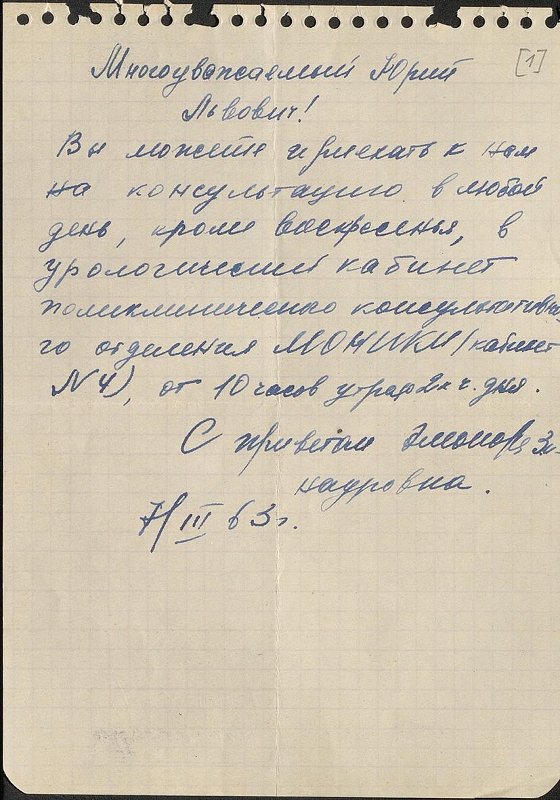 [1]
Многоуважаемый Юрий
Львович!
Вы можете приехать к нам
на консультацию в любой
день, кроме воскресенья, в
урологический кабинет
поликлинического консультативно-
го отделения МОНИКИ (кабинет
N4), от 10 часов утра до 2х ч. дня.
С приветом
7/III 63 г.